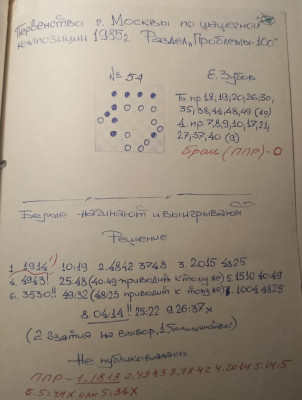 Первенство г. Москвы по шашечной
композиции 1985г. Раздел „Проблемы-100"
№ 54
Е. Зубов
Б. пр 18,19,20,26,30,
35,38,44,48,49 (10)
Ч. пр. 7,8,9,10,17,21,
27,37,40 (9)
Брак (ППР) - 0
Белые начинают и выигрывают
Решение
1. 1914!) 10:19 2. 4842 3748 3. 2015 4825
4. 4943! 25:48 (40:49 приводит к тому же) 5. 1510 40:49
6. 3530!! 49:32 (48:25 приводит к тому же) 7. 1004 4825
8. 04:14!! 25:22 9. 26:37x
(2 взятия на выбор, 1 большинство)
Не публиковалась
ППР - 1. 1813 2. 4943 3. 4842 4. 2014 5.
5. 5:44X или 5:36X